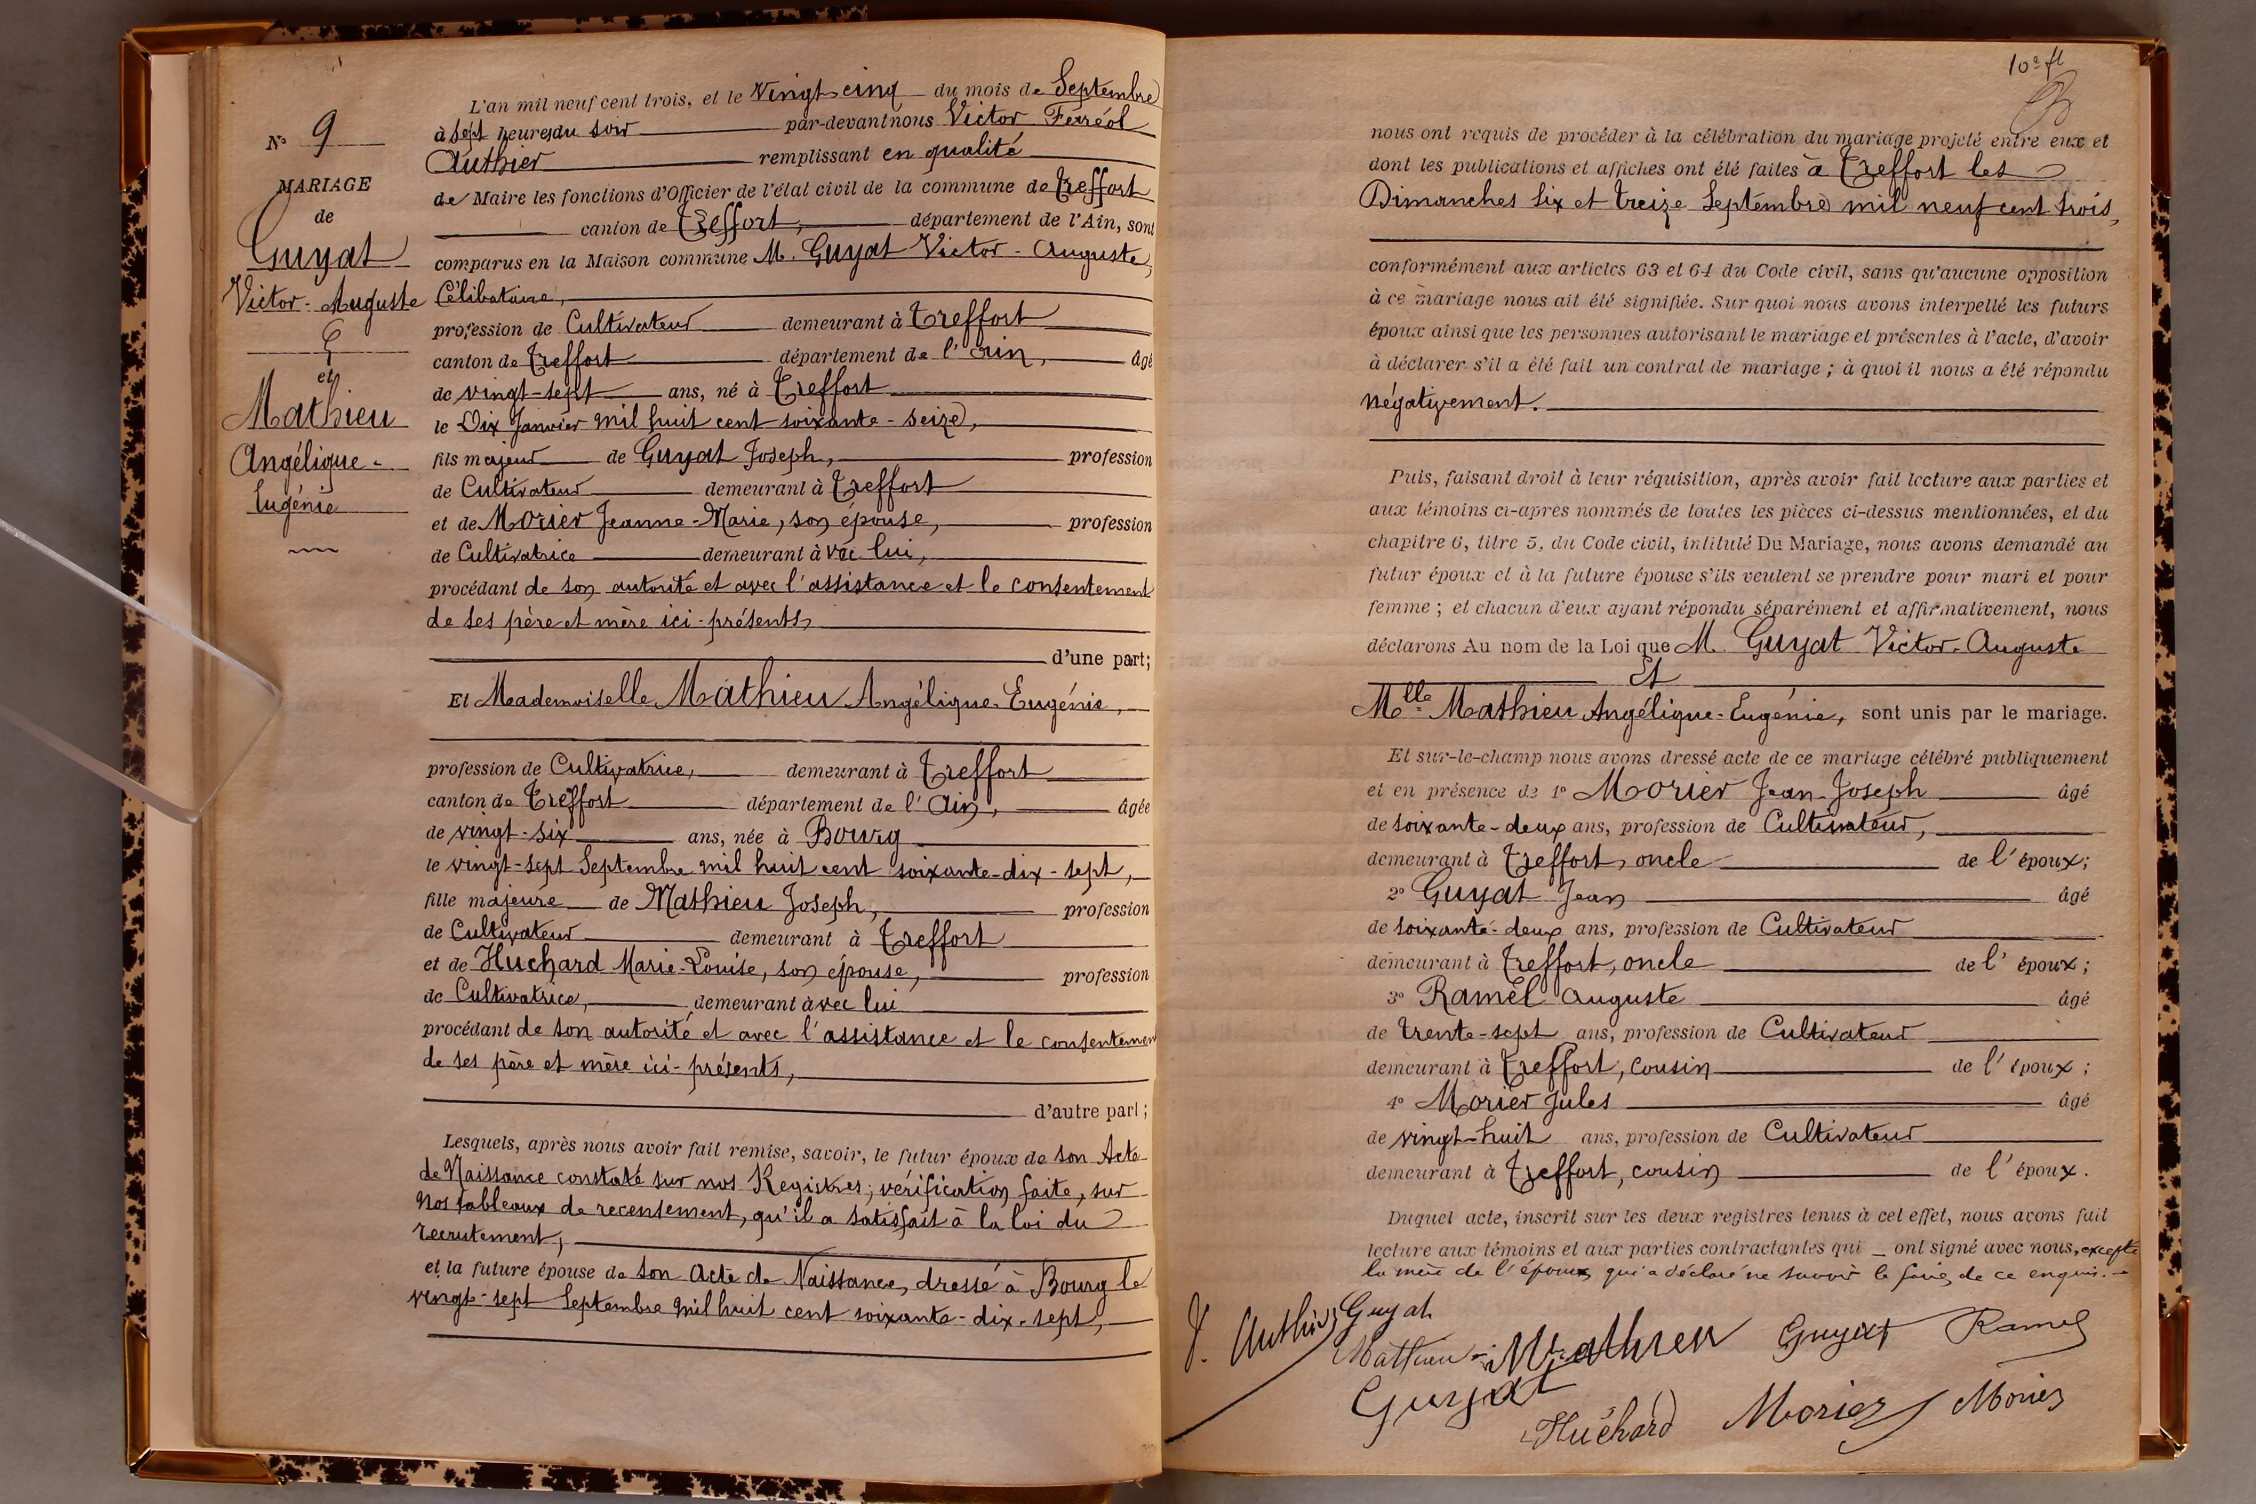 N° 9
MARIAGE
de
Guyat
Victor-Auguste
et
Mathieu
Angélique-
Eugénie
L'an mil neuf cent trois, et le Vingt cinq du mois de Septembre
à sept heures du soir par-devant nous Victor Ferréol
Authier remplissant en qualité
de Maire les fonctions d'Officier de l'état civil de la commune de Treffort
canton de Treffort, département de l'Ain, sont
comparus en la Maison commune M. Guyat Victor-Auguste,
Célibataire,
profession de Cultivateur demeurant à Treffort
canton de Treffort département de l'Ain, âgé
de vingt-sept ans, né à Treffort
le Dix Janvier mil huit cent soixante-seize,
fils majeur de Guyat Joseph, profession
de Cultivateur demeurant à Treffort
et de Morier Jeanne-Marie, son épouse, profession
de Cultivatrice demeurant àvec lui,
procédant de son autorité et avec l'assistance et le consentement
de ses père et mère ici-présents,
d'une part;
Et Mademoiselle Mathieu Angélique Eugénie,
profession de Cultivatrice, demeurant à Treffort
canton de Treffort département de l'Ain, âgée
de vingt-six ans, née à Bourg
le vingt-sept Septembre mil huit cent soixante-dix-sept,
fille majeure de Mathieu Joseph, profession
de Cultivateur demeurant à Treffort
et de Huchard Marie-Louise, son épouse, profession
de Cultivatrice, demeurant àvec lui
procédant de son autorité et avec l'assistance et le consentement
de ses père et mère ici-présents,
d'autre part;
Lesquels, après nous avoir fait remise, savoir, le futur époux de son Acte
de Naissance constaté sur nos Registres; vérification faite, sur
nos tableaux de recensement, qu'il a satisfait à la loi du
recrutement,
et la future épouse de son Acte de Naissance, dressé à Bourg le
vingt-sept Septembre mil huit cent soixante-dix-sept,
10e ft
nous ont requis de procéder à la célébration du mariage projeté entre eux et
dont les publications et affiches ont été faites à Treffort les
Dimanches six et treize Septembre mil neuf cent trois,
conformément aux articles 63 et 64 du Code civil, sans qu'aucune opposition
à ce mariage nous ait été signifiée. Sur quoi nous avons interpellé les futurs
époux ainsi que les personnes autorisant le mariage et présentes à l'acte, d'avoir
à déclarer s'il a été fait un contrat de mariage; à quoi il nous a été répondu
négativement.
Puis, faisant droit à leur réquisition, après avoir fait lecture aux parties et
aux témoins ci-après nommés de toutes les pièces ci-dessus mentionnées, et du
chapitre 6, titre 5, du Code civil, intitulé Du Mariage, nous avons demandé au
futur époux et à la future épouse s'ils veulent se prendre pour mari et pour
femme; et chacun d'eux ayant répondu séparément et affirmativement, nous
déclarons Au nom de la Loi que M. Guyat Victor-Auguste
Et
Mlle Mathieu Angélique-Eugénie, sont unis par le mariage.
Et sur-le-champ nous avons dressé acte de ce mariage célébré publiquement
et en présence de 1° Morier Jean-Joseph âgé
de soixante-deux ans, profession de Cultivateur,
demeurant à Treffort, oncle de l'époux;
2° Guyat Jean âgé
de soixante-deux ans, profession de Cultivateur
demeurant à Treffort, oncle de l'époux;
3° Ramel Auguste âgé
de trente-sept ans, profession de Cultivateur
demeurant à Treffort, cousin de l'époux;
4° Morier Jules âgé
de vingt-huit ans, profession de Cultivateur
demeurant à Treffort, cousin de l'époux.
Duquel acte, inscrit sur les deux registres tenus à cet effet, nous avons fait
lecture aux témoins et aux parties contractantes qui ont signé avec nous, excepté
la mère de l'époux, qui a déclaré ne savoir le faire, de ce enquis.
V. Authier Guyat
Mathieu Mathieu Guyat Ramel
Guyat
Huchard Morier Morier